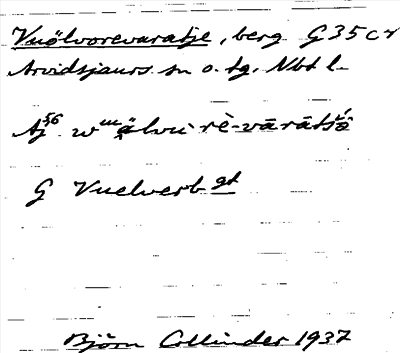 Vuölvorevaratje, berg G35 c r
Arvidsjaurs sn o. tg. Nbt l.
Aj 56 wᵘälvu-rè-vārātjə́
G Vuelverb gt
Björn Collinder 1937